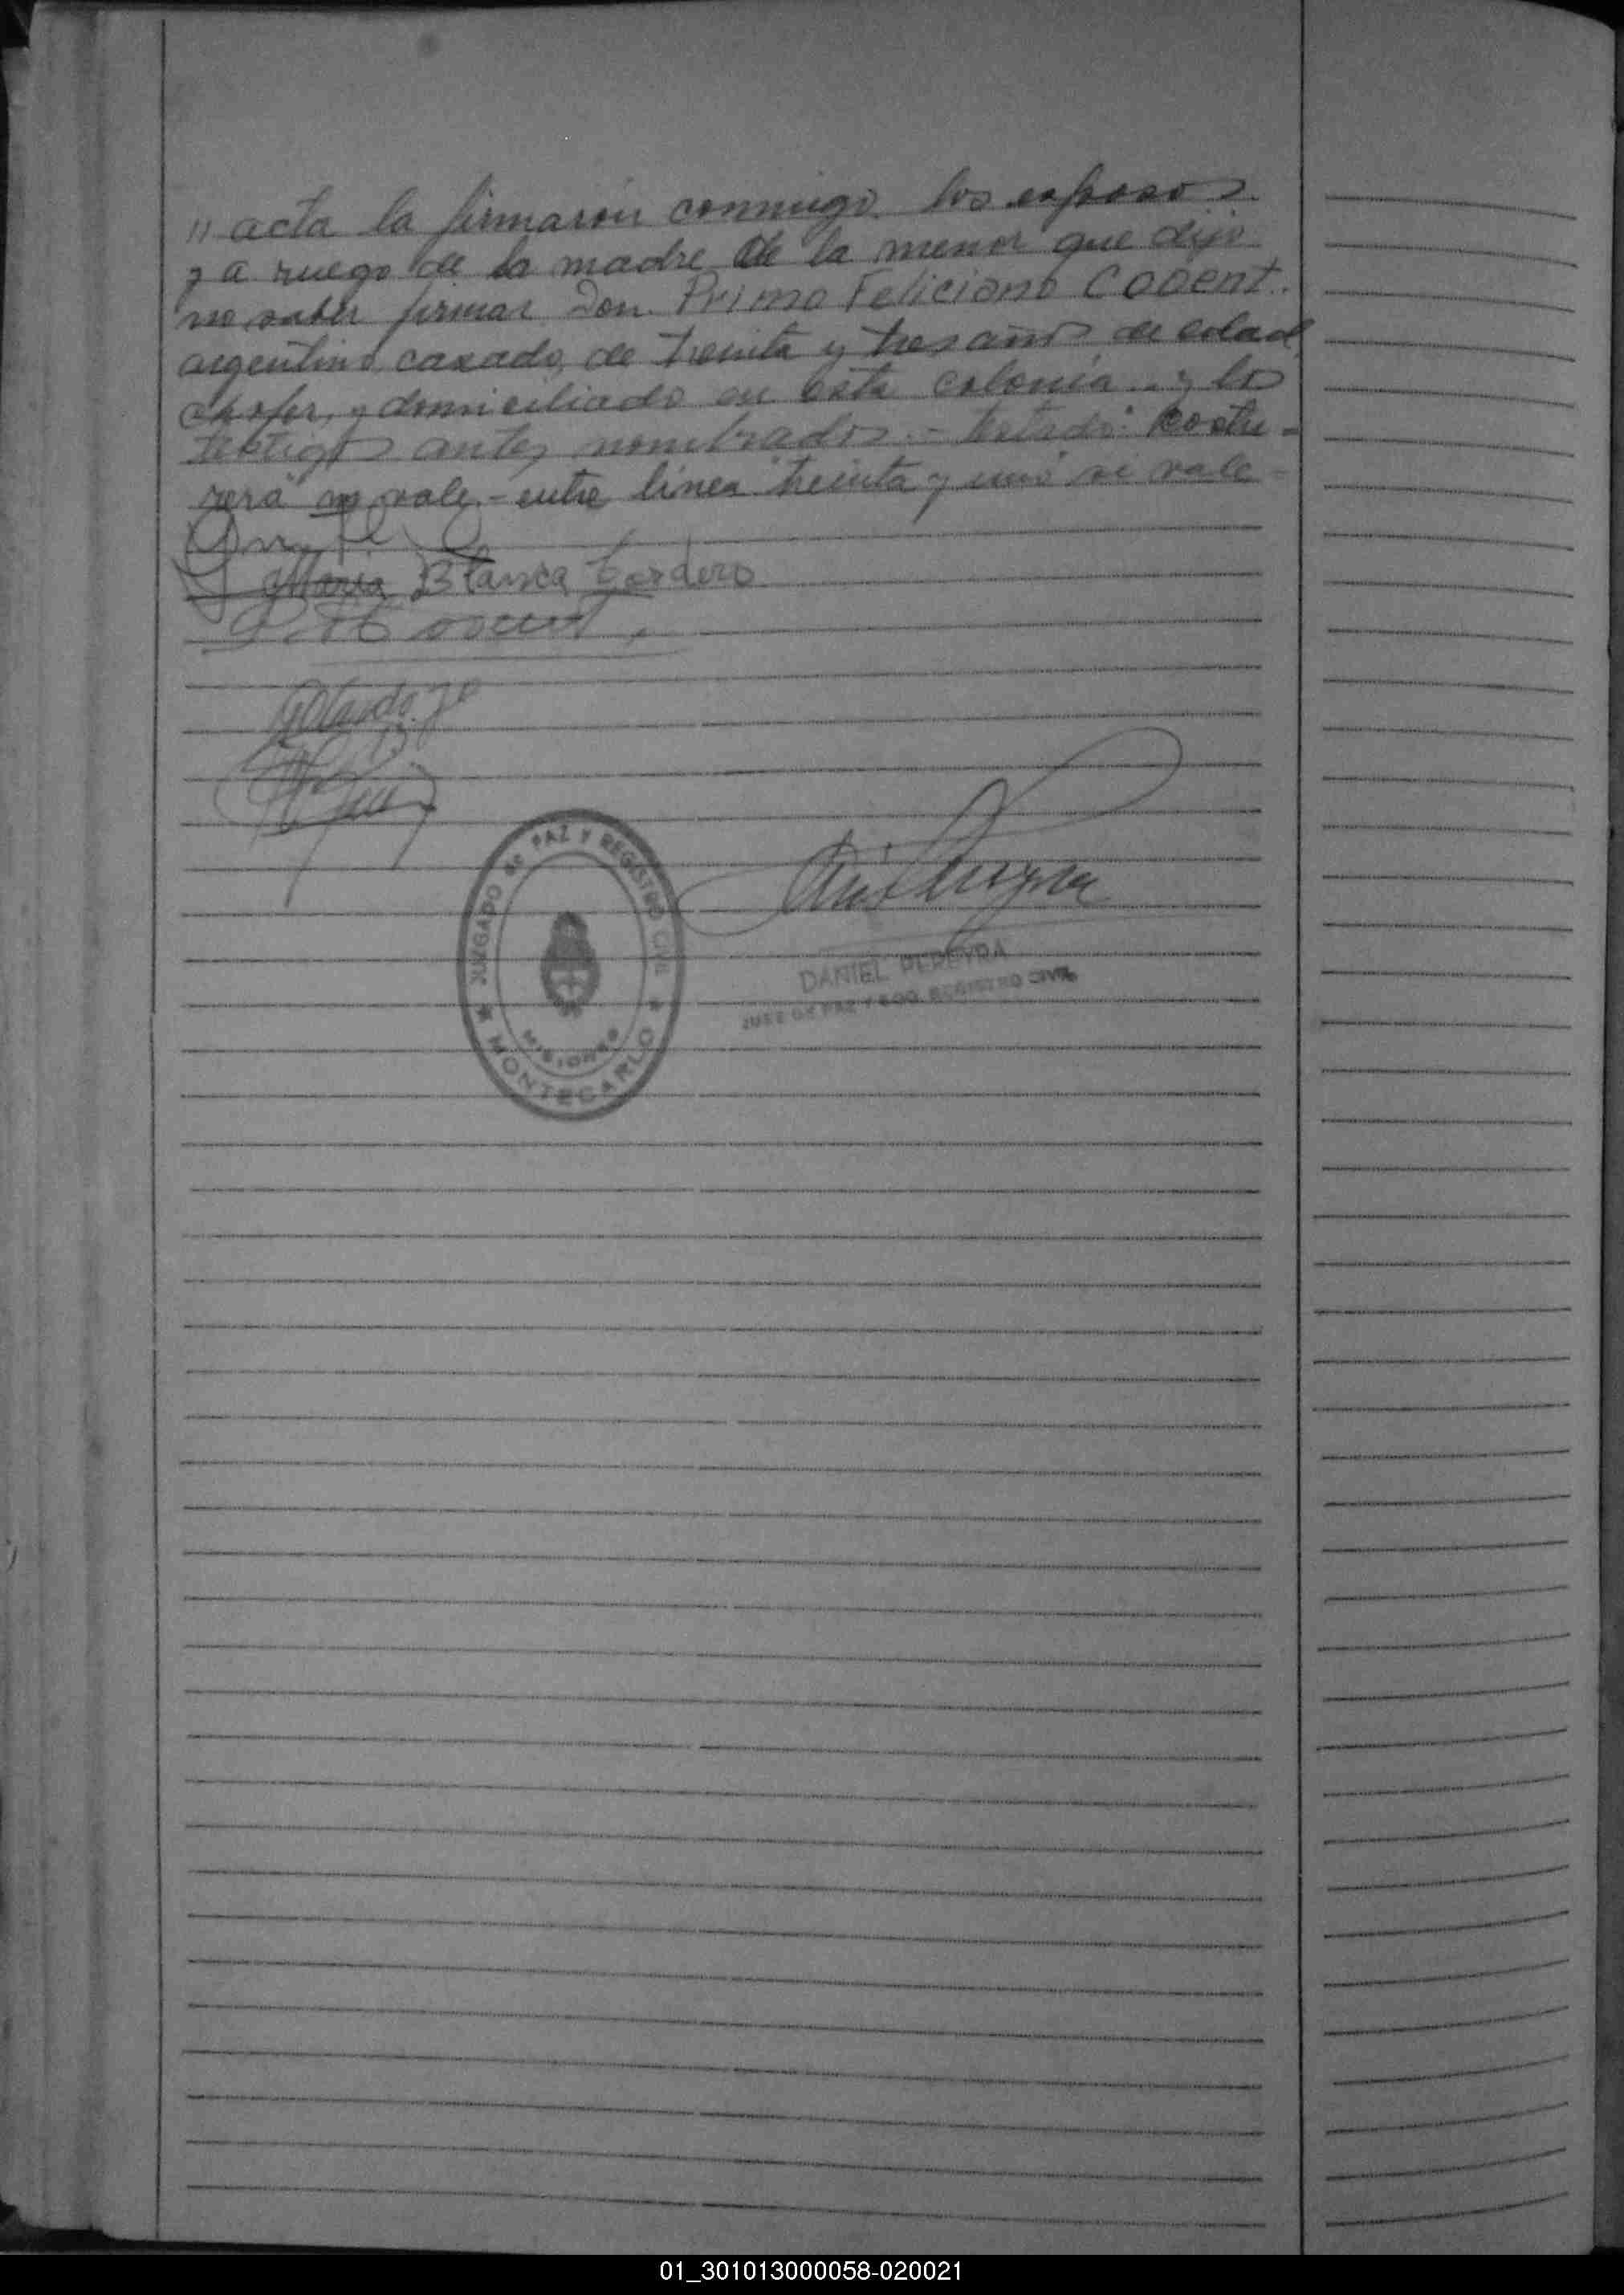 " acta la firmaron conmigo los esposos
y a ruego de la madre de la menor que dijo
no saber firmar Don. Primo Feliciano Cooent.
argentino, casado, de treinta y tres años de edad,
chofer, y domiciliado en esta colonia.. y los
testigos antes nombrados.- testado: "costu-
rera" no vale.- entre linea "treinta y uno" si vale-
Maria Blanca Cordero
JUZGADO de PAZ Y REGISTRO CIVIL
MISIONES
★ MONTECARLO ★
DANIEL PEREYRA
JUEZ DE PAZ Y ENC. REGISTRO CIVIL
01_301013000058-020021